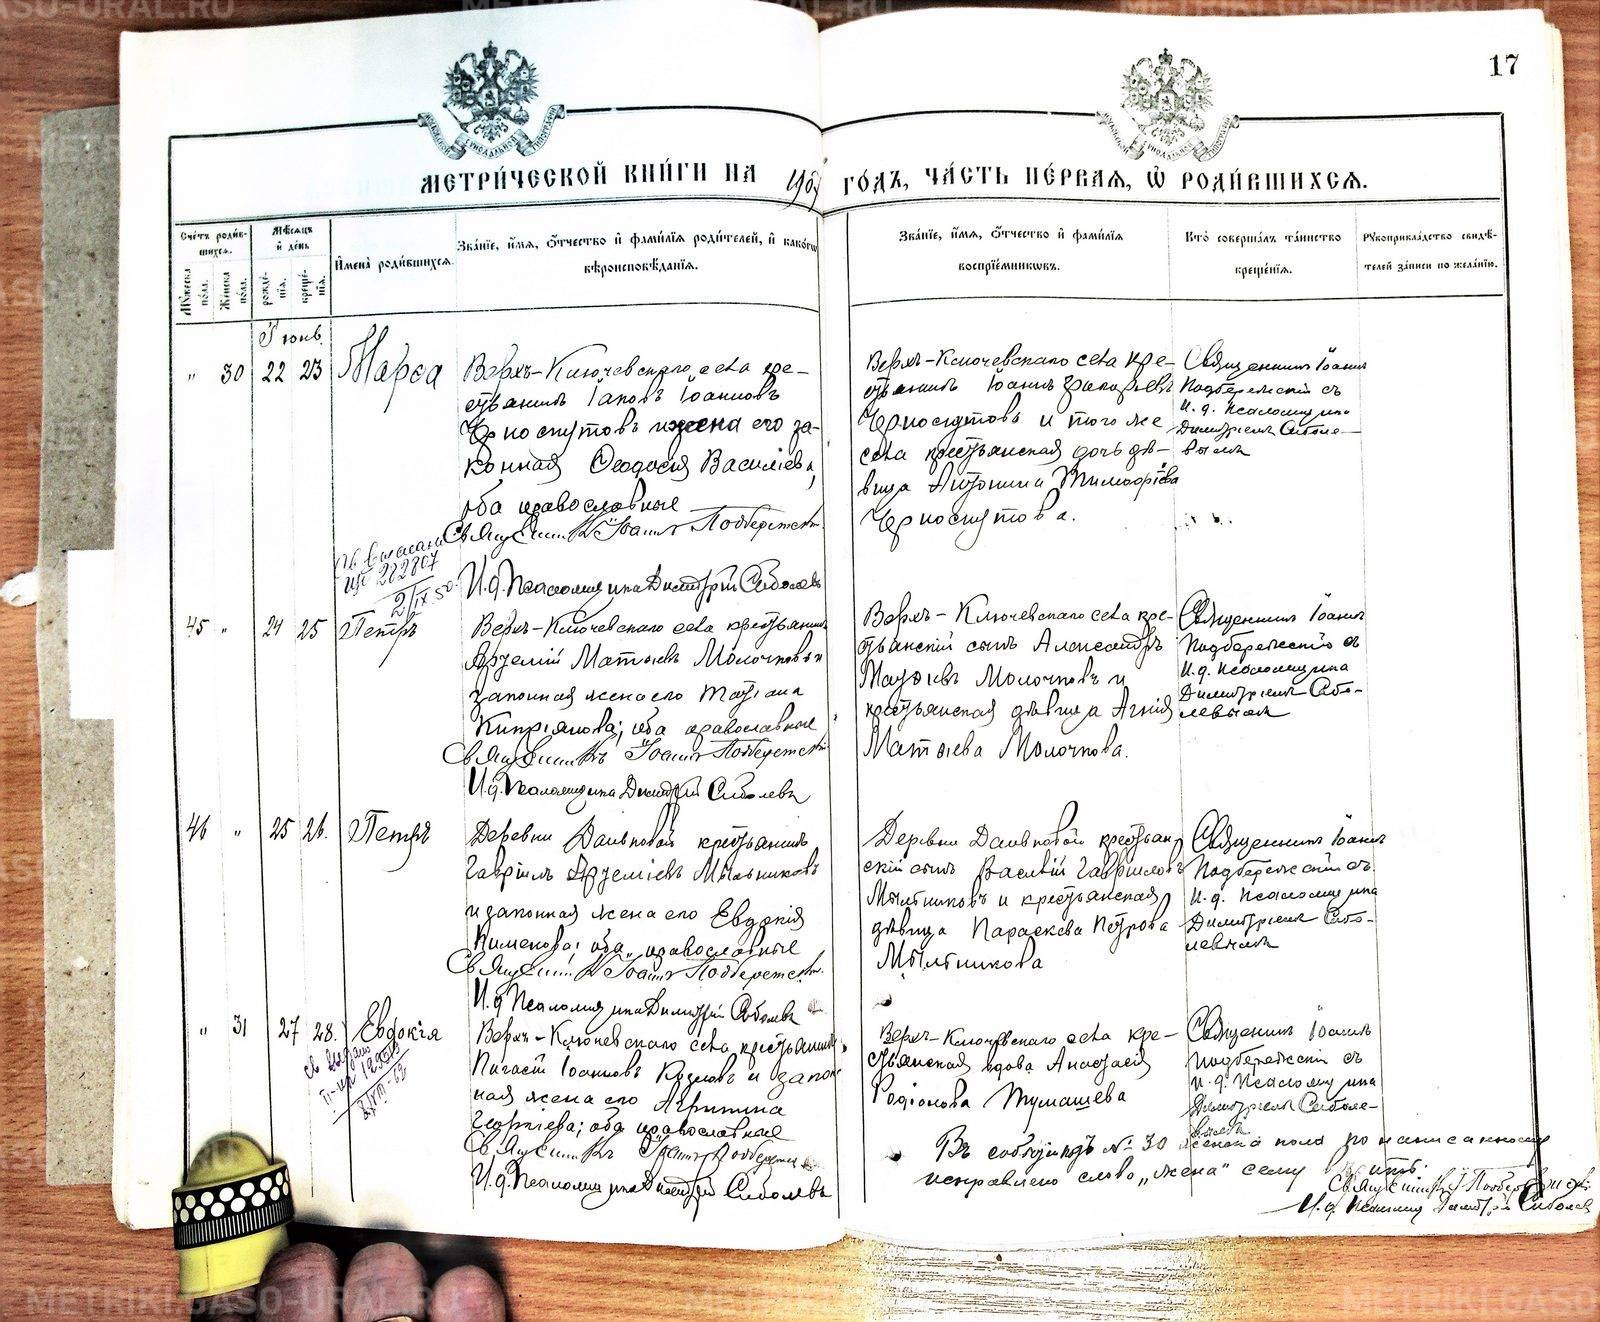 METRIKI.GASO-URAL.RU
17
МЕТРИ́ЧЕСКОЙ КНИ́ГИ НА ГО́ДЪ, ЧА́СТЬ ПЕ́РВАЯ, Ѡ҆ РОДИ́ВШИХСЯ.
Сче́тъ роди́в-
шихся.
Мꙋ́жеска по́ла.
Же́нска по́ла.
Мѣ́сяцъ
и҆ де́нь
рожде́-
нїя.
креще́-
нїя.
И҆мена̀ роди́вшихся.
Зва́нїе, и҆́мя, ѻ҆́тчество и҆ фами́лїя роди́телей, и҆ како́гѡ
вѣроисповѣ́данїя.
Зва́нїе, и҆́мя, ѻ҆́тчество и҆ фами́лїя
воспрїе́мникѡвъ.
Кто̀ соверша́лъ та́инство
креще́нїя.
Рꙋкоприкла́дство свидѣ́-
телей за́писи по жела́нїю.
Іюнь
" 30 22 23 Марѳа
Верхъ-Ключевскаго села кре-
стьянинъ Іаковъ Іоанновъ
Черноскутовъ и жена его за-
конная Ѳеодосія Васильева,
оба православные
Священникъ Іоаннъ Подбережскій
И.д. Псаломщика Димитрій Соболевъ
Верхъ-Ключевскаго села кре-
стьянинъ Іоаннъ
Черноскутовъ и того же
села крестьянская дочь дѣ-
вица Антонина Тимофѣева
Черноскутова.
Священникъ Іоаннъ
Подбережскій съ
И. д. псаломщика
Димитріемъ Соболе-
вымъ
282807
2/IX 50.
45 " 24 25 Петръ
Верхъ-Ключевскаго села крестьянинъ
Артемій Матѳіевъ Молочковъ и
законная жена его Татіана
Кипріянова; оба православные
Священникъ Іоаннъ Подбережскій
И.д. Псаломщика Димитрій Соболевъ
Верхъ-Ключевскаго села кре-
стьянскій сынъ Александръ
Матѳіевъ Молочковъ и
крестьянская дѣвица Агнія
Матѳіева Молочкова.
Священникъ Іоаннъ
Подбережскій съ
И.д. псаломщика
Димитріемъ Собо-
левымъ
46 " 25 26. Петръ
Деревни крестьянинъ
Гавріилъ Артеміевъ Мыльниковъ
и законная жена его Евдокія
Пименова; оба православные
Священникъ Іоаннъ Подбережскій
И.д Псаломщика Димитрій Соболевъ
Деревни крестьян-
скій сынъ Василій Гавриловъ
Мыльниковъ и крестьянская
дѣвица Параскева Петрова
Мыльникова
Священникъ Іоаннъ
Подбережскій съ
И.д. псаломщика
Димитріемъ Собо-
левымъ
" 31 27 28. Евдокія
Верхъ-Ключевскаго села крестьянинъ
Іоанновъ Козловъ и закон
ная жена его Агрипина
Георгіева; оба православные
Священникъ Іоаннъ Подбережскій
И.д. Псаломщика Димитрій Соболевъ
Верхъ-Ключевскаго села кре-
стьянская вдова Анастасія
Родіонова Тумашева
Священникъ Іоаннъ
Подбережскій съ
и.д. Псаломщика
Димитріемъ Соболе-
вымъ
№ 30 женска пола по написанному
исправлено слово „жена" сему вѣрить.
Священникъ І. Подбережскій
И.д. Псаломщ Димитрій Соболев
METRIKI.GASO-URAL.RU